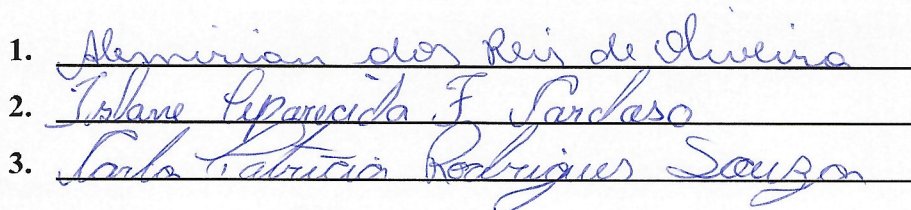 1. Alemirian dos Reis de Oliveira
2. Islane Aparecida F Cardoso
3. Carla Patrícia Rodrigues Souza